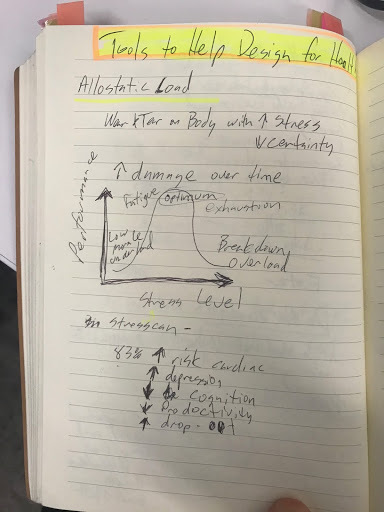 Tools to Help Design for Healt
Allostatic Load
Wear & Tear on Body with ↑ Stress
↓ Certainty
↑ damage over time
Performance
Fatigue
optimum
exhaustion
underload
Breakdown
overload
Stress Level
stresscan -
83% ↑ risk cardiac
↑ depression
↓ Cognition
↓ Productivity
↑ drop-out